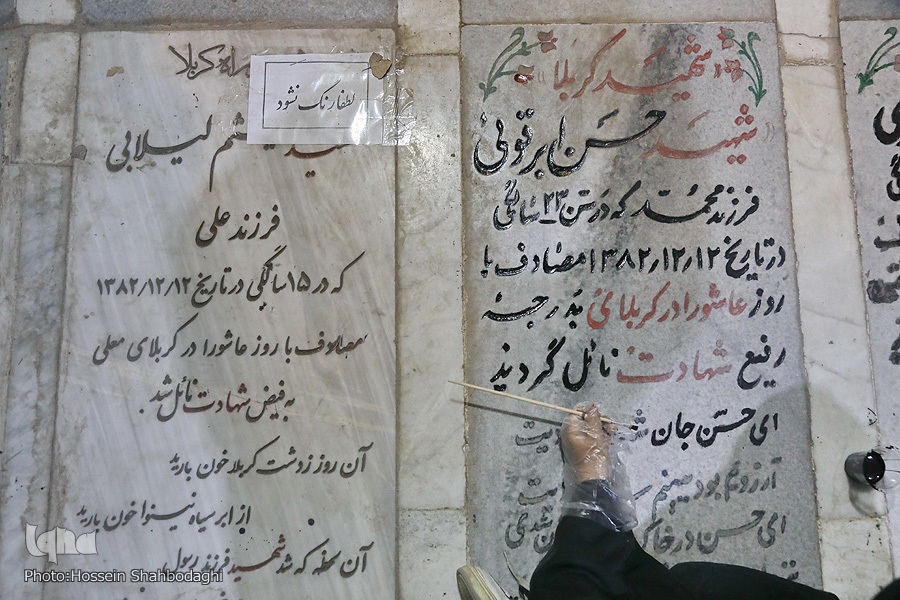 «شهید کربلا»
شهید حسن ابرقوئی
فرزند محمد که در سن ۲۳ سالگی
در تاریخ ۱۳۸۲/۱۲/۱۲ مصادف با
روز عاشورا در کربلای بدرجه
رفیع شهادت نائل گردید
ای حسن جان
آرزویم بود بینم
ای حسن در خاک
راه کربلا
لطفا رنگ نشود
لیلابی
فرزند علی
که در ۱۵ سالگی در تاریخ ۱۳۸۲/۱۲/۱۲
مصادف با روز عاشورا در کربلای معلی
به فیض شهادت نائل شد
آن روز ز دشت کربلا خون بارید
از ابر سیاه نینوا خون بارید
آن لحظه که شد شهید فرزند رسول
iqna
Photo:Hossein Shahbodaghi